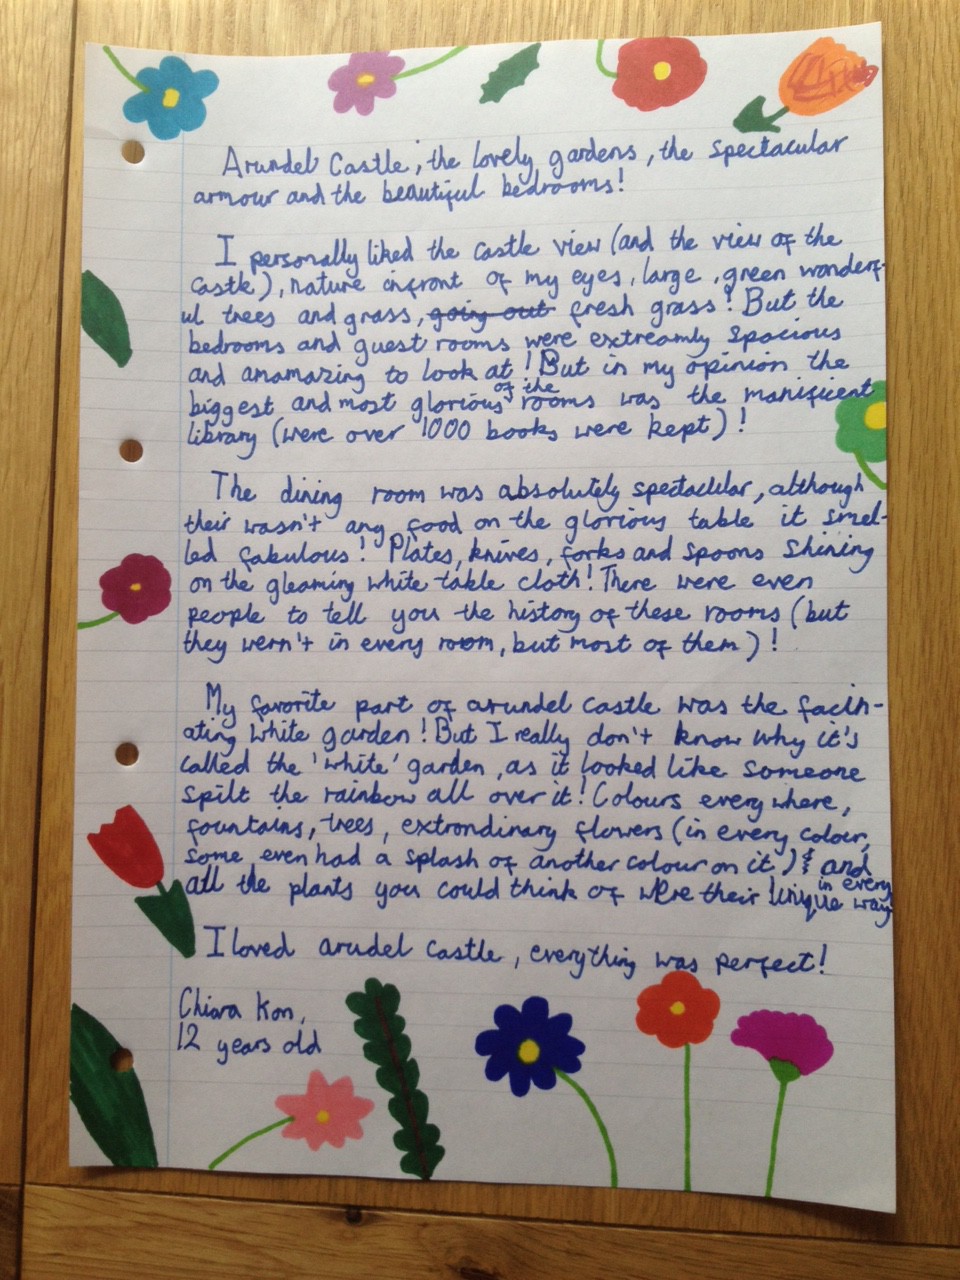 Arundel Castle, the lovely gardens, the spectacular
armour and the beautiful bedrooms!
I personally liked the castle view (and the view of the
castle), nature infront of my eyes, large, green wonderf-
ul trees and grass, going out fresh grass! But the
bedrooms and guest rooms were extreamly spacious
and anamazing to look at! But in my opinion the
biggest and most glorious of the rooms was the manificent
library (were over 1000 books were kept)!
The dining room was absolutely spectaclular, although
their wasn't any food on the glorious table it smel-
led fabulous! Plates, knives, forks and spoons shining
on the gleaming white table cloth! There were even
people to tell you the history of these rooms (but
they wern't in every room, but most of them)!
My favorite part of arundel castle was the facin-
ating white garden! But I really don't know why it's
called the 'white' garden, as it looked like someone
spilt the rainbow all over it! Colours everywhere,
fountains, trees, extrondinary flowers (in every colour,
some even had a splash of another colour on it) and
all the plants you could think of were their unique in every way
I loved arudel castle, everything was perfect!
Chiara Kon,
12 years old